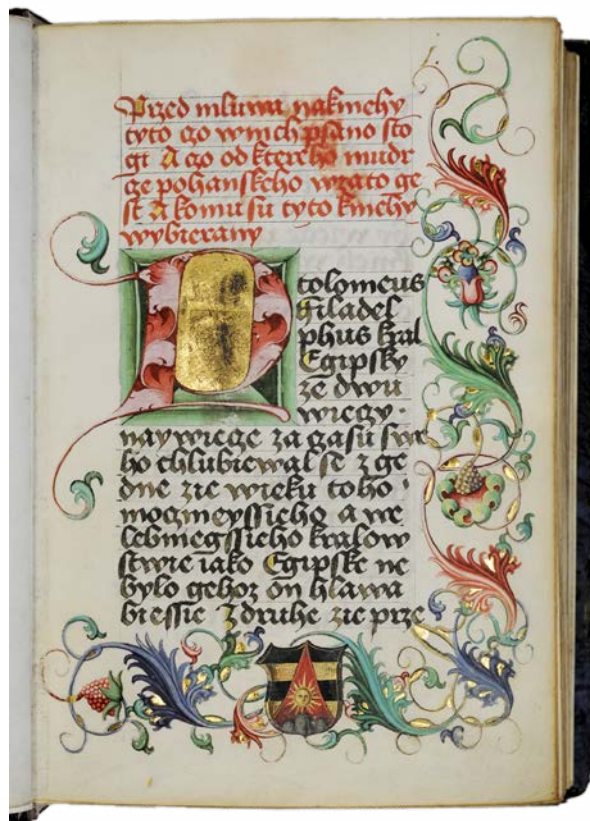 Przed mluwa nakmehy
tyto czo wnich psano sto
gi A czo od ktereho mudr
cze pohanskeho wzato ge
st a komu su tyto kmehy
wybierany
Ptolomeus
Filadel
phus kral
Egipsky
ze dwu
wieczy
naywiecze za czasu swe
ho chlubiewal se z ge
dne zie wieku toho
moczmeyssieho a we
lebmegssieho kralow
stwie iako Egipske ne
bylo gehoz on hlawa
biessie Z druhe zie prze